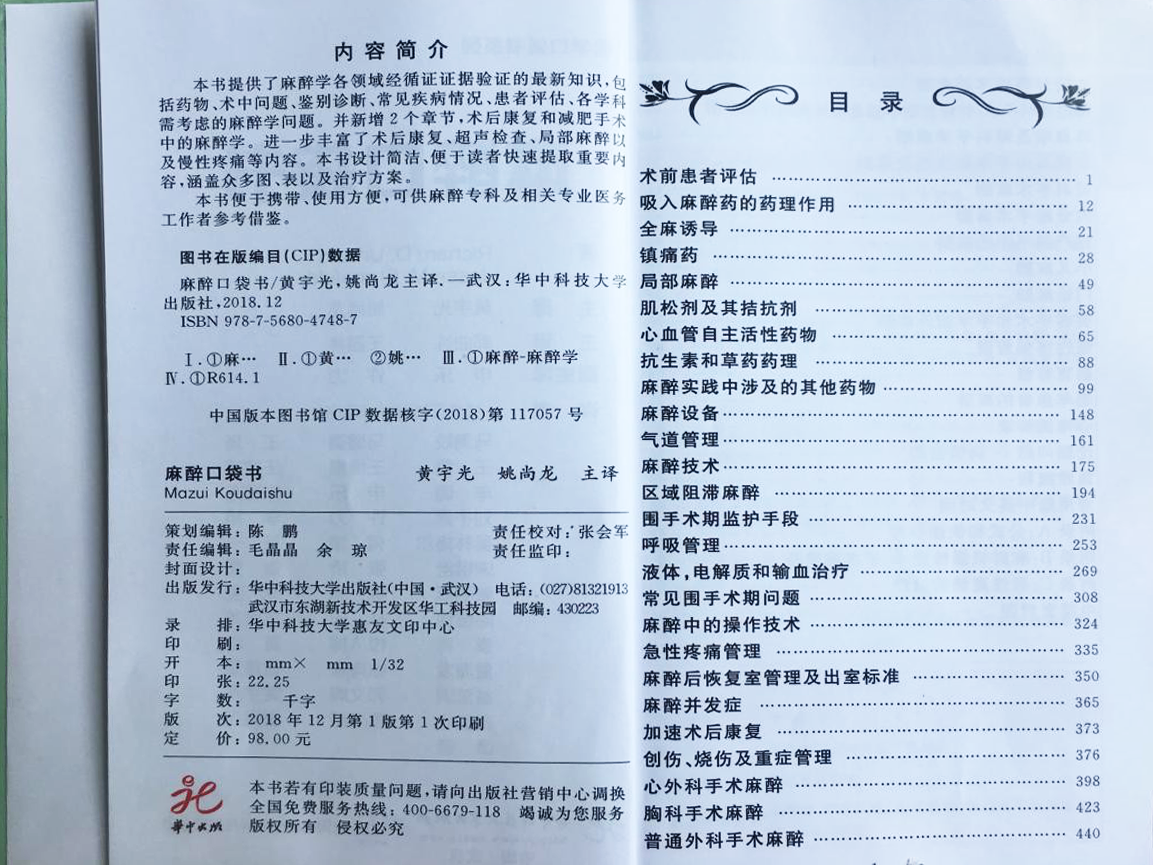 内容简介
本书提供了麻醉学各领域经循证证据验证的最新知识,包
括药物、术中问题、鉴别诊断、常见疾病情况、患者评估、各学科
需考虑的麻醉学问题。并新增 2 个章节,术后康复和减肥手术
中的麻醉学。进一步丰富了术后康复、超声检查、局部麻醉以
及慢性疼痛等内容。本书设计简洁、便于读者快速提取重要内
容,涵盖众多图、表以及治疗方案。
本书便于携带、使用方便,可供麻醉专科及相关专业医务
工作者参考借鉴。
图书在版编目(CIP)数据
麻醉口袋书/黄宇光,姚尚龙主译.—武汉:华中科技大学
出版社,2018.12
ISBN 978-7-5680-4748-7
Ⅰ.①麻… Ⅱ.①黄… ②姚… Ⅲ.①麻醉-麻醉学
Ⅳ.①R614.1
中国版本图书馆 CIP 数据核字(2018)第 117057 号
麻醉口袋书 黄宇光 姚尚龙 主译
Mazui Koudaishu
策划编辑:陈 鹏 责任校对:张会军
责任编辑:毛晶晶 余 琼 责任监印:
封面设计:
出版发行:华中科技大学出版社(中国·武汉) 电话:(027)81321913
武汉市东湖新技术开发区华工科技园 邮编:430223
录 排:华中科技大学惠友文印中心
印 刷:
开 本: mm× mm 1/32
印 张:22.25
字 数: 千字
版 次:2018 年 12 月第 1 版第 1 次印刷
定 价:98.00 元
华中出版
本书若有印装质量问题,请向出版社营销中心调换
全国免费服务热线:400-6679-118 竭诚为您服务
版权所有 侵权必究
目录
术前患者评估 …… 1
吸入麻醉药的药理作用 …… 12
全麻诱导 …… 21
镇痛药 …… 28
局部麻醉 …… 49
肌松剂及其拮抗剂 …… 58
心血管自主活性药物 …… 65
抗生素和草药药理 …… 88
麻醉实践中涉及的其他药物 …… 99
麻醉设备 …… 148
气道管理 …… 161
麻醉技术 …… 175
区域阻滞麻醉 …… 194
围手术期监护手段 …… 231
呼吸管理 …… 253
液体,电解质和输血治疗 …… 269
常见围手术期问题 …… 308
麻醉中的操作技术 …… 324
急性疼痛管理 …… 335
麻醉后恢复室管理及出室标准 …… 350
麻醉并发症 …… 365
加速术后康复 …… 373
创伤、烧伤及重症管理 …… 376
心外科手术麻醉 …… 398
胸科手术麻醉 …… 423
普通外科手术麻醉 …… 440